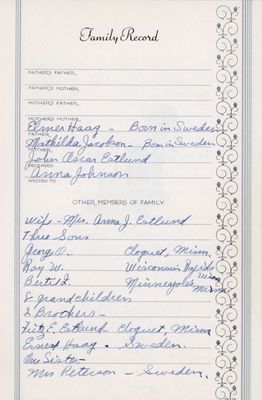 Family Record
FATHER'S FATHER
FATHER'S MOTHER
MOTHER'S FATHER
MOTHER'S MOTHER
Elmer Haag - Born in Sweden
FATHER
Mathilda Jacobson - Born in Sweden
MOTHER
John Oscar Estlund
DECEASED
Anna Johnson
WEDDED TO
OTHER MEMBERS OF FAMILY
Wife - Mrs. Anna J. Estlund
Three Sons
George O. Cloquet, Minn.
Ray W. Wisconsin Rapids Wis.
Minneapolis Minn.
8 grandchildren
2 Brothers -
Fritz E. Estlund Cloquet, Minn
Ernest Haag - Sweden.
One Sister -
Mrs Peterson - Sweden.